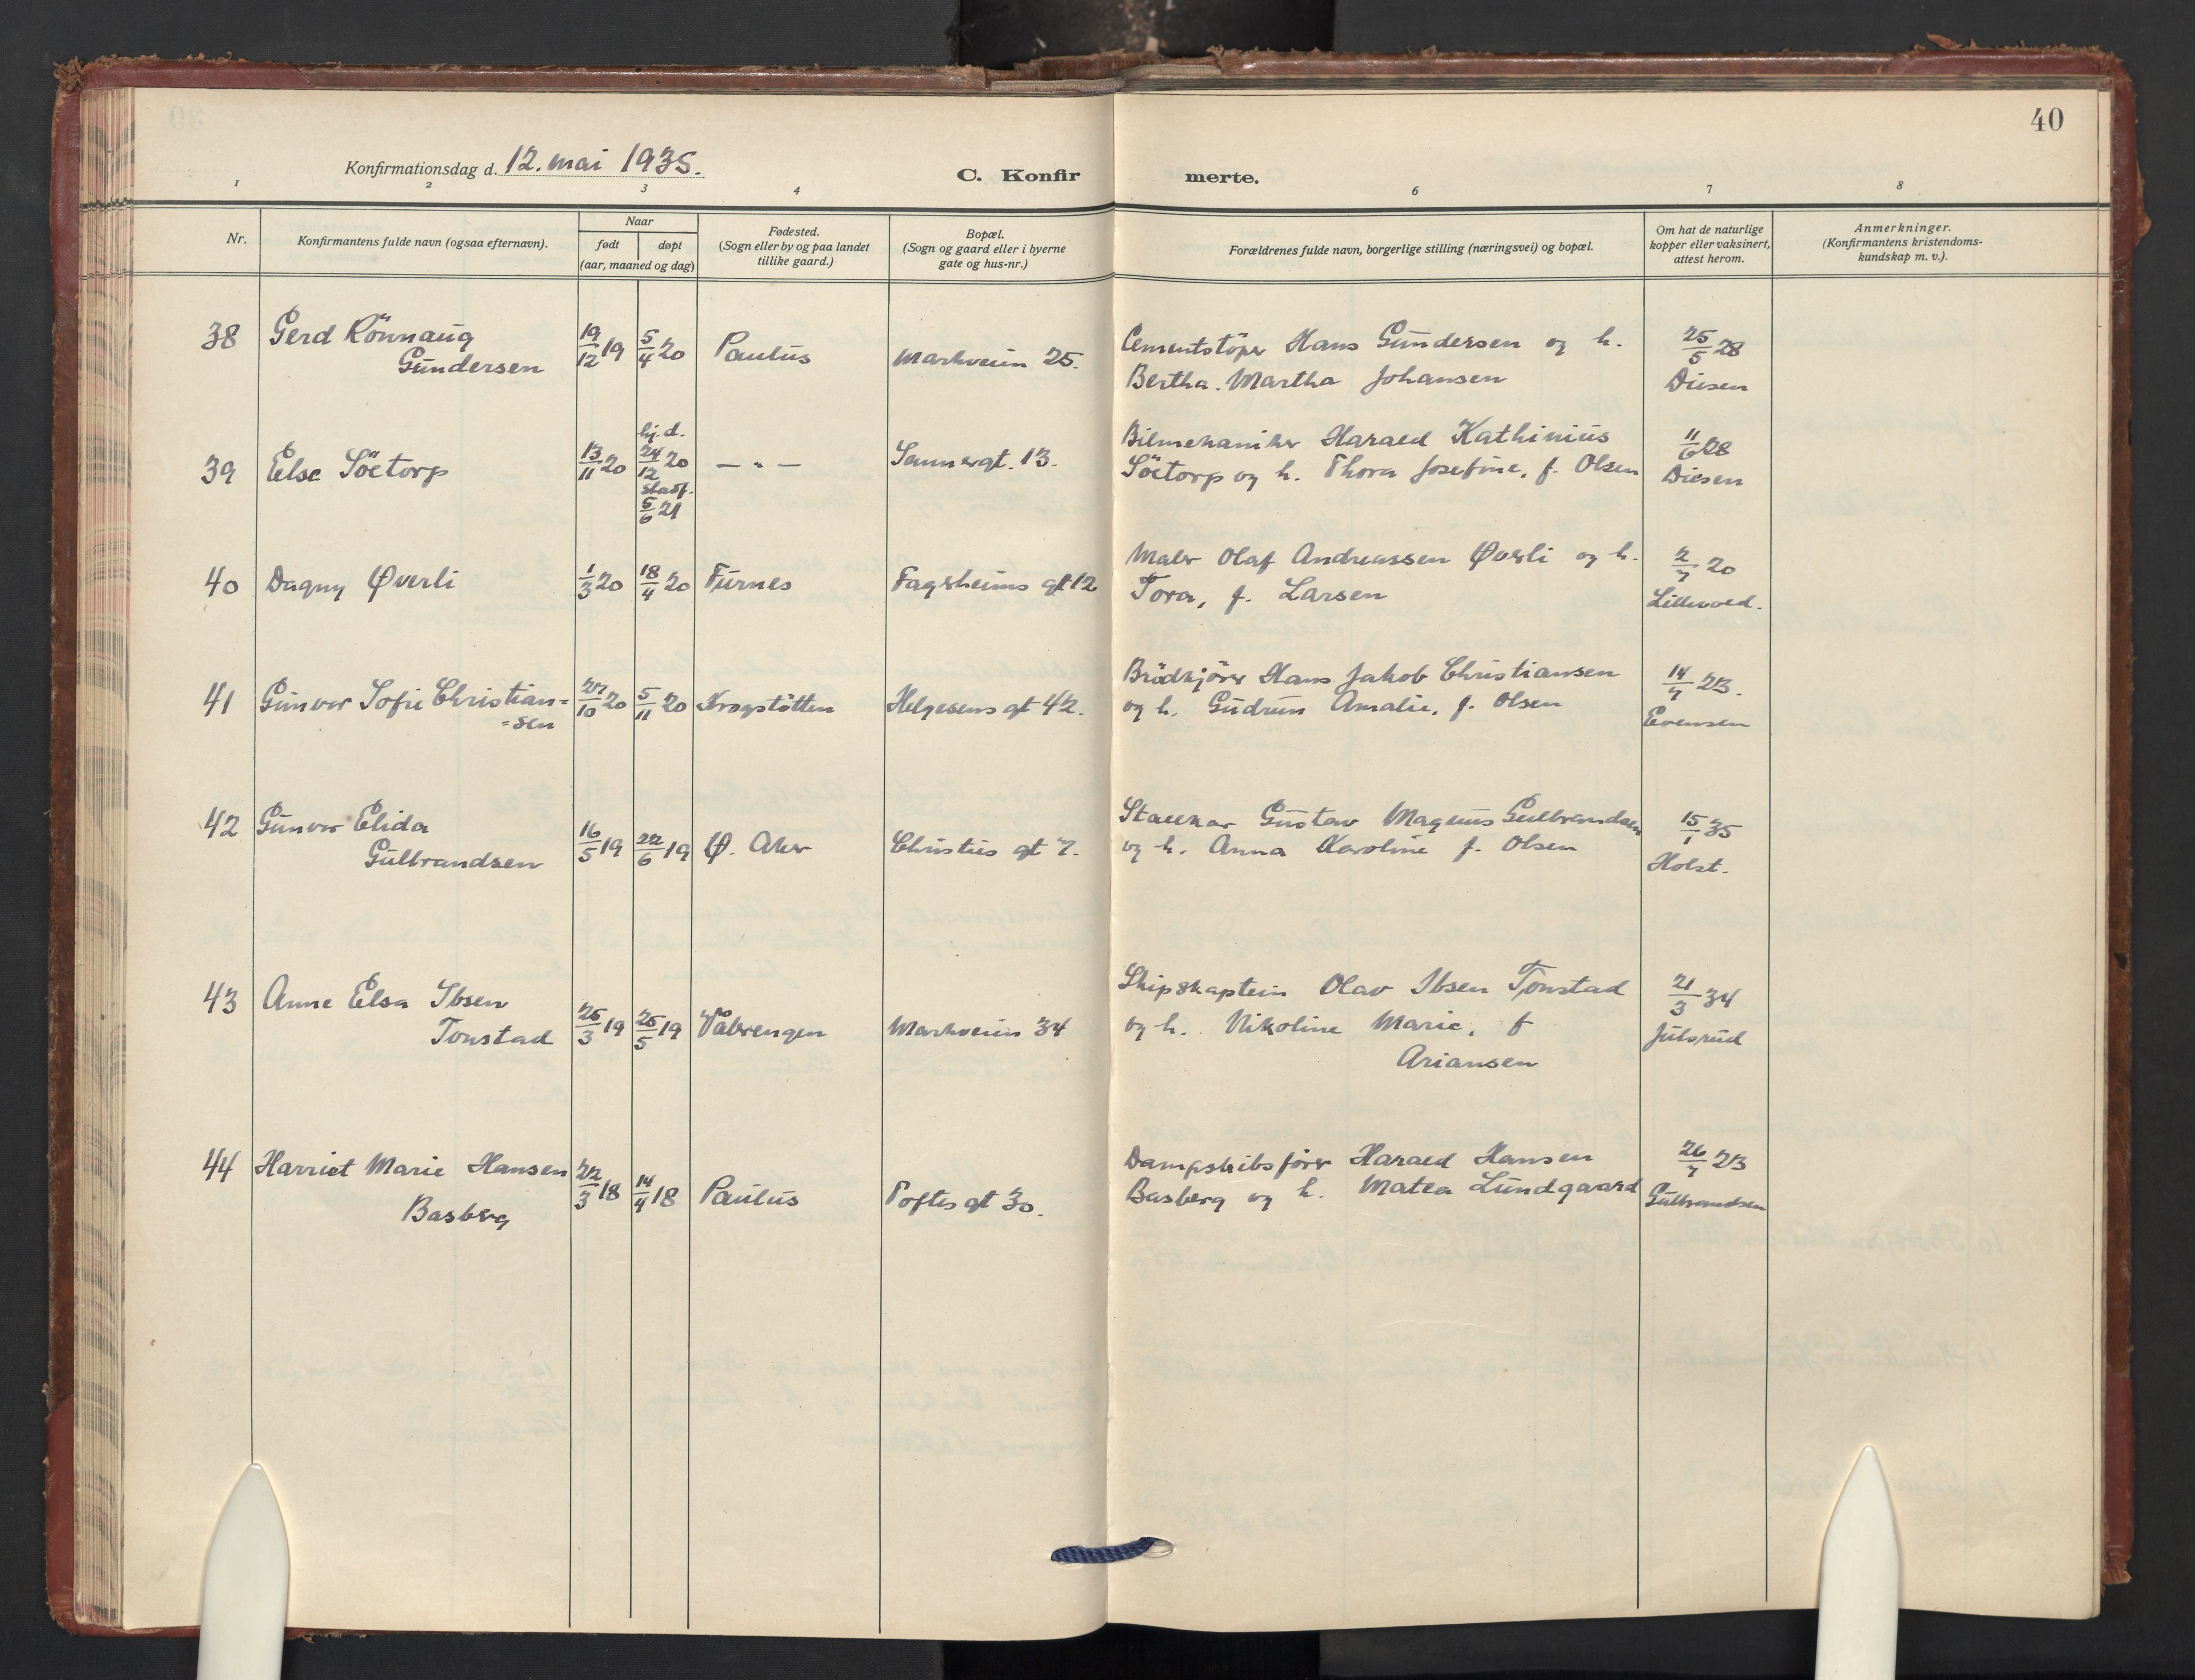 40
Konfirmationsdag d. 12. mai 1935.
C. Konfir merte.
1 2 3 4 6 7 8
Nr.
Konfirmantens fulde navn (ogsaa efternavn).
Naar
født
døpt
(aar, maaned og dag)
Fødested.
(Sogn eller by og paa landet
tillike gaard.)
Bopæl.
(Sogn og gaard eller i byerne
gate og hus-nr.)
Forældrenes fulde navn, borgerlige stilling (næringsvei) og bopæl.
Om hat de naturlige
kopper eller vaksinert,
attest herom.
Anmerkninger.
(Konfirmantens kristendoms-
kundskap m. v.).
38 Gerd Rönnaug
Gundersen
19/12 19 5/4 20 Paulus Markveien 25.
Cementstöper Hans Gundersen og h.
Bertha Martha Johansen
25/5 28
Diesen
39 Else Söetorp
13/11 20
hj. d.
24/12 20
stadf.
5/6 21
— " — Sannergt. 13.
Bilmekaniker Harald Kathinius
Söetorp og h. Thora Josefine, f. Olsen
11/6 28
Diesen
40 Dagny Øverli 1/3 20 18/4 20 Furnes Fagerheims gt 12
Maler Olaf Andreassen Øverli og h.
Tora, f. Larsen
2/7 20
Lillevold.
41 Gunvor Sofie Christian=
=sen
27/10 20 5/11 20 Krogstötten Helgesens gt 42.
Brödkjörer Hans Jakob Christiansen
og h. Gudrun Amalie, f. Olsen
14/7 23.
Evensen
42 Gunvor Elida
Gulbrandsen
16/5 19 22/6 19 Ø. Aker Christies gt 7.
Stallkar Gustav Magnus Gulbrandsen
og h. Anna Karoline f. Olsen
15/1 35
Holst.
43 Anne Elsa Ibsen
Tonstad
25/3 19 25/5 19 Vålerengen Markveien 34
Skipskaptein Olav Ibsen Tonstad
og h. Nikoline Marie, f
Ariansen
21/3 34
Julsrud
44 Harriet Marie Hansen
Basberg
22/3 18 14/4 18 Paulus Toftes gt 30.
Dampskibsförer Harald Hansen
Basberg og h. Matea Lundgaard
26/7 23
Gulbrandsen